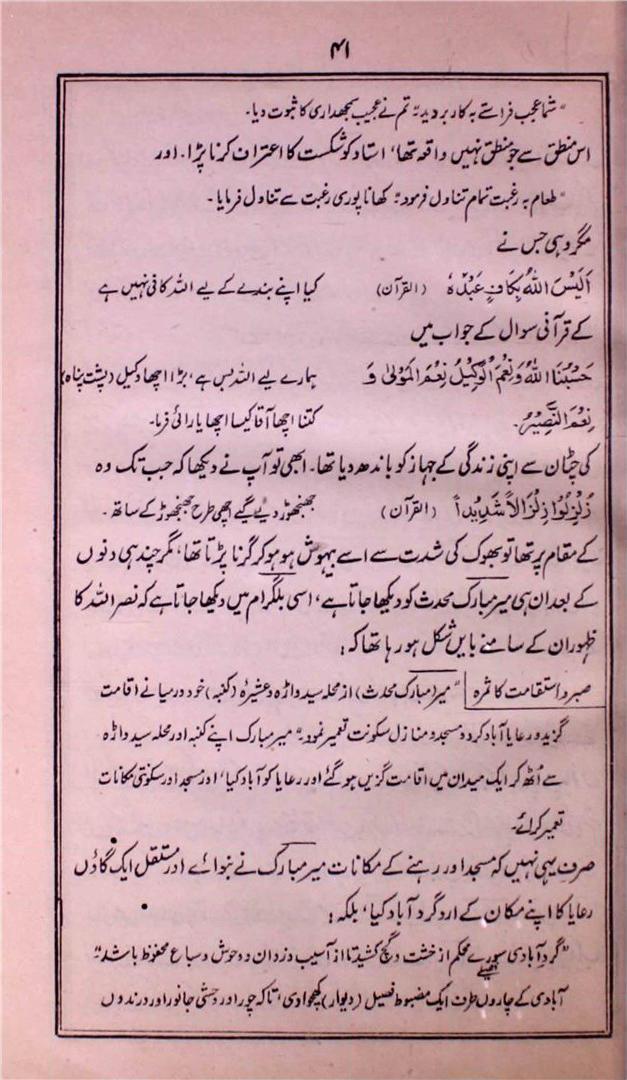 ۴۱
"شما عجب فراستے بہ کار بردید" تم نے عجیب سمجھداری کا ثبوت دیا۔
اس منطق سے جو منطق نہیں واقعہ تھا، استاد کو شکست کا اعتراف کرنا پڑا۔ اور
"طعام بہ رغبت تمام تناول فرمود" کھانا پوری رغبت سے تناول فرمایا۔
مگر وہی جس نے
اَلَیْسَ اللّٰہُ بِکَافٍ عَبْدَہٗ (القرآن) کیا اپنے بندے کے لیے اللہ کافی نہیں ہے
کے قرآنی سوال کے جواب میں
حَسْبُنَا اللّٰہُ وَنِعْمَ الْوَکِیْلُ نِعْمَ الْمَوْلٰی وَ ہمارے لیے اللہ بس ہے، بڑا اچھا وکیل (پشت پناہ)
نِعْمَ النَّصِیْرُ۔ کتنا اچھا آقا کیسا اچھا یارائی فرما۔
کی چٹان سے اپنی زندگی کے جہاز کو باندھ دیا تھا۔ ابھی تو آپ نے دیکھا کہ جب تک وہ
زُلْزِلُوْا زِلْزَالًا شَدِیْداً (القرآن) جھنجھوڑ دیے گیے اچھی طرح جھنجھوڑ کے ساتھ۔
کے مقام پر تھا تو بھوک کی شدت سے اسے بیہوش ہو ہو کر گرنا پڑتا تھا، مگر چند ہی دنوں
کے بعد ان ہی میر مبارک محدث کو دیکھا جاتا ہے، اسی بلگرام میں دیکھا جاتا ہے کہ نصر اللہ کا
ظہور ان کے سامنے بایں شکل ہو رہا تھا کہ:
صبر و استقامت کا ثمرہ "میر (مبارک محدث) از محلہ سید واڑہ و عشیرۂ (کنبہ) خود در میانے اقامت
گزید و رعایا آباد کردہ مسجد و منازل سکونت تعمیر نمود" میر مبارک اپنے کنبہ اور محلہ سید واڑہ
سے اُٹھ کر ایک میدان میں اقامت گزیں ہو گئے اور رعایا کو آباد کیا، اور مسجد اور سکونتی مکانات
تعمیر کرائے۔
صرف یہی نہیں کہ مسجد اور رہنے کے مکانات میر مبارک نے بنوائے اور مستقل ایک گاؤں
رعایا کا اپنے مکان کے ارد گرد آباد کیا، بلکہ:
"گرد آبادی سورے محکم از خشت و گچ کشید تا از آسیب دزدان و وحوش و سباع محفوظ باشد"
آبادی کے چاروں طرف ایک مضبوط فصیل (دیوار) کھچوا دی، تاکہ چور اور وحشی جانور اور درندوں